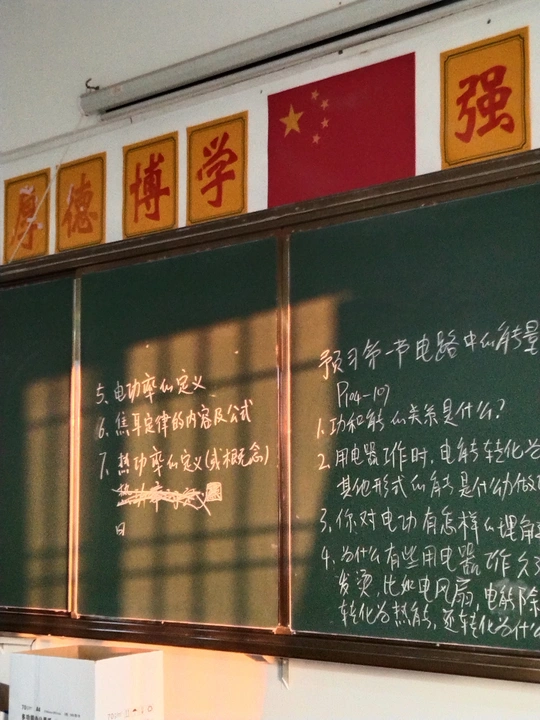 厚 德 博 学
强
预习第一节电路中的能量
P104-107
1. 功和能的关系是什么?
2. 用电器工作时,电能转化为
其他形式的能是什么做功
3. 你对电功有怎样的理解
4. 为什么有些用电器工作久了
发烫,比如电风扇,电能除
转化为热能,还转化为什么
5. 电功率的定义
6. 焦耳定律的内容及公式
7. 热功率的定义(或概念)
日